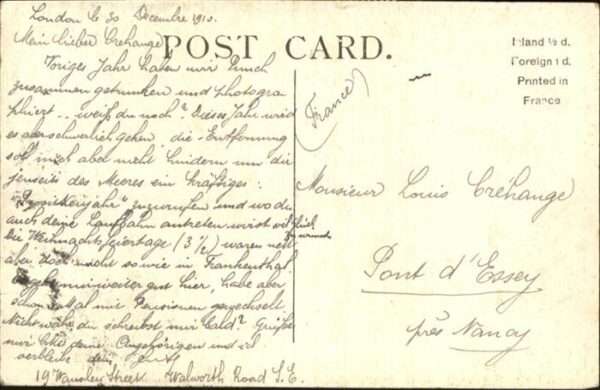 London le 30 Decembre 1910.
Mein lieber Créhange
POST CARD.
Inland ½ d.
Foreign 1 d.
Printed in
France
(France)
Voriges Jahr haben wir Punch
zusammen getrunken und photogra
phiert .. weißt du noch? Dieses Jahr wird
es aber schwerlich gehen, die Entfernung
soll mich aber nicht hindern um dir
jenseits des Meeres ein kräftiges:
"Prosit Neujahr" zuzurufen und wo du
auch deine Laufbahn antreten wirst viel Glück
zu wünsch
Die Weihnachtsfeiertage (3 ½) waren nett
aber doch nicht so wie in Frankenthal.
gut hier, habe aber
schon mal mir Pensionen gewechselt
Nicht wahr du schreibst mir bald? Grüße
mir bitte deine Angehörigen und ich
verbleibe dein
19 Wansley Street. Walworth Road S.E.
Monsieur Louis Créhange
Pont d'Essey
près Nancy